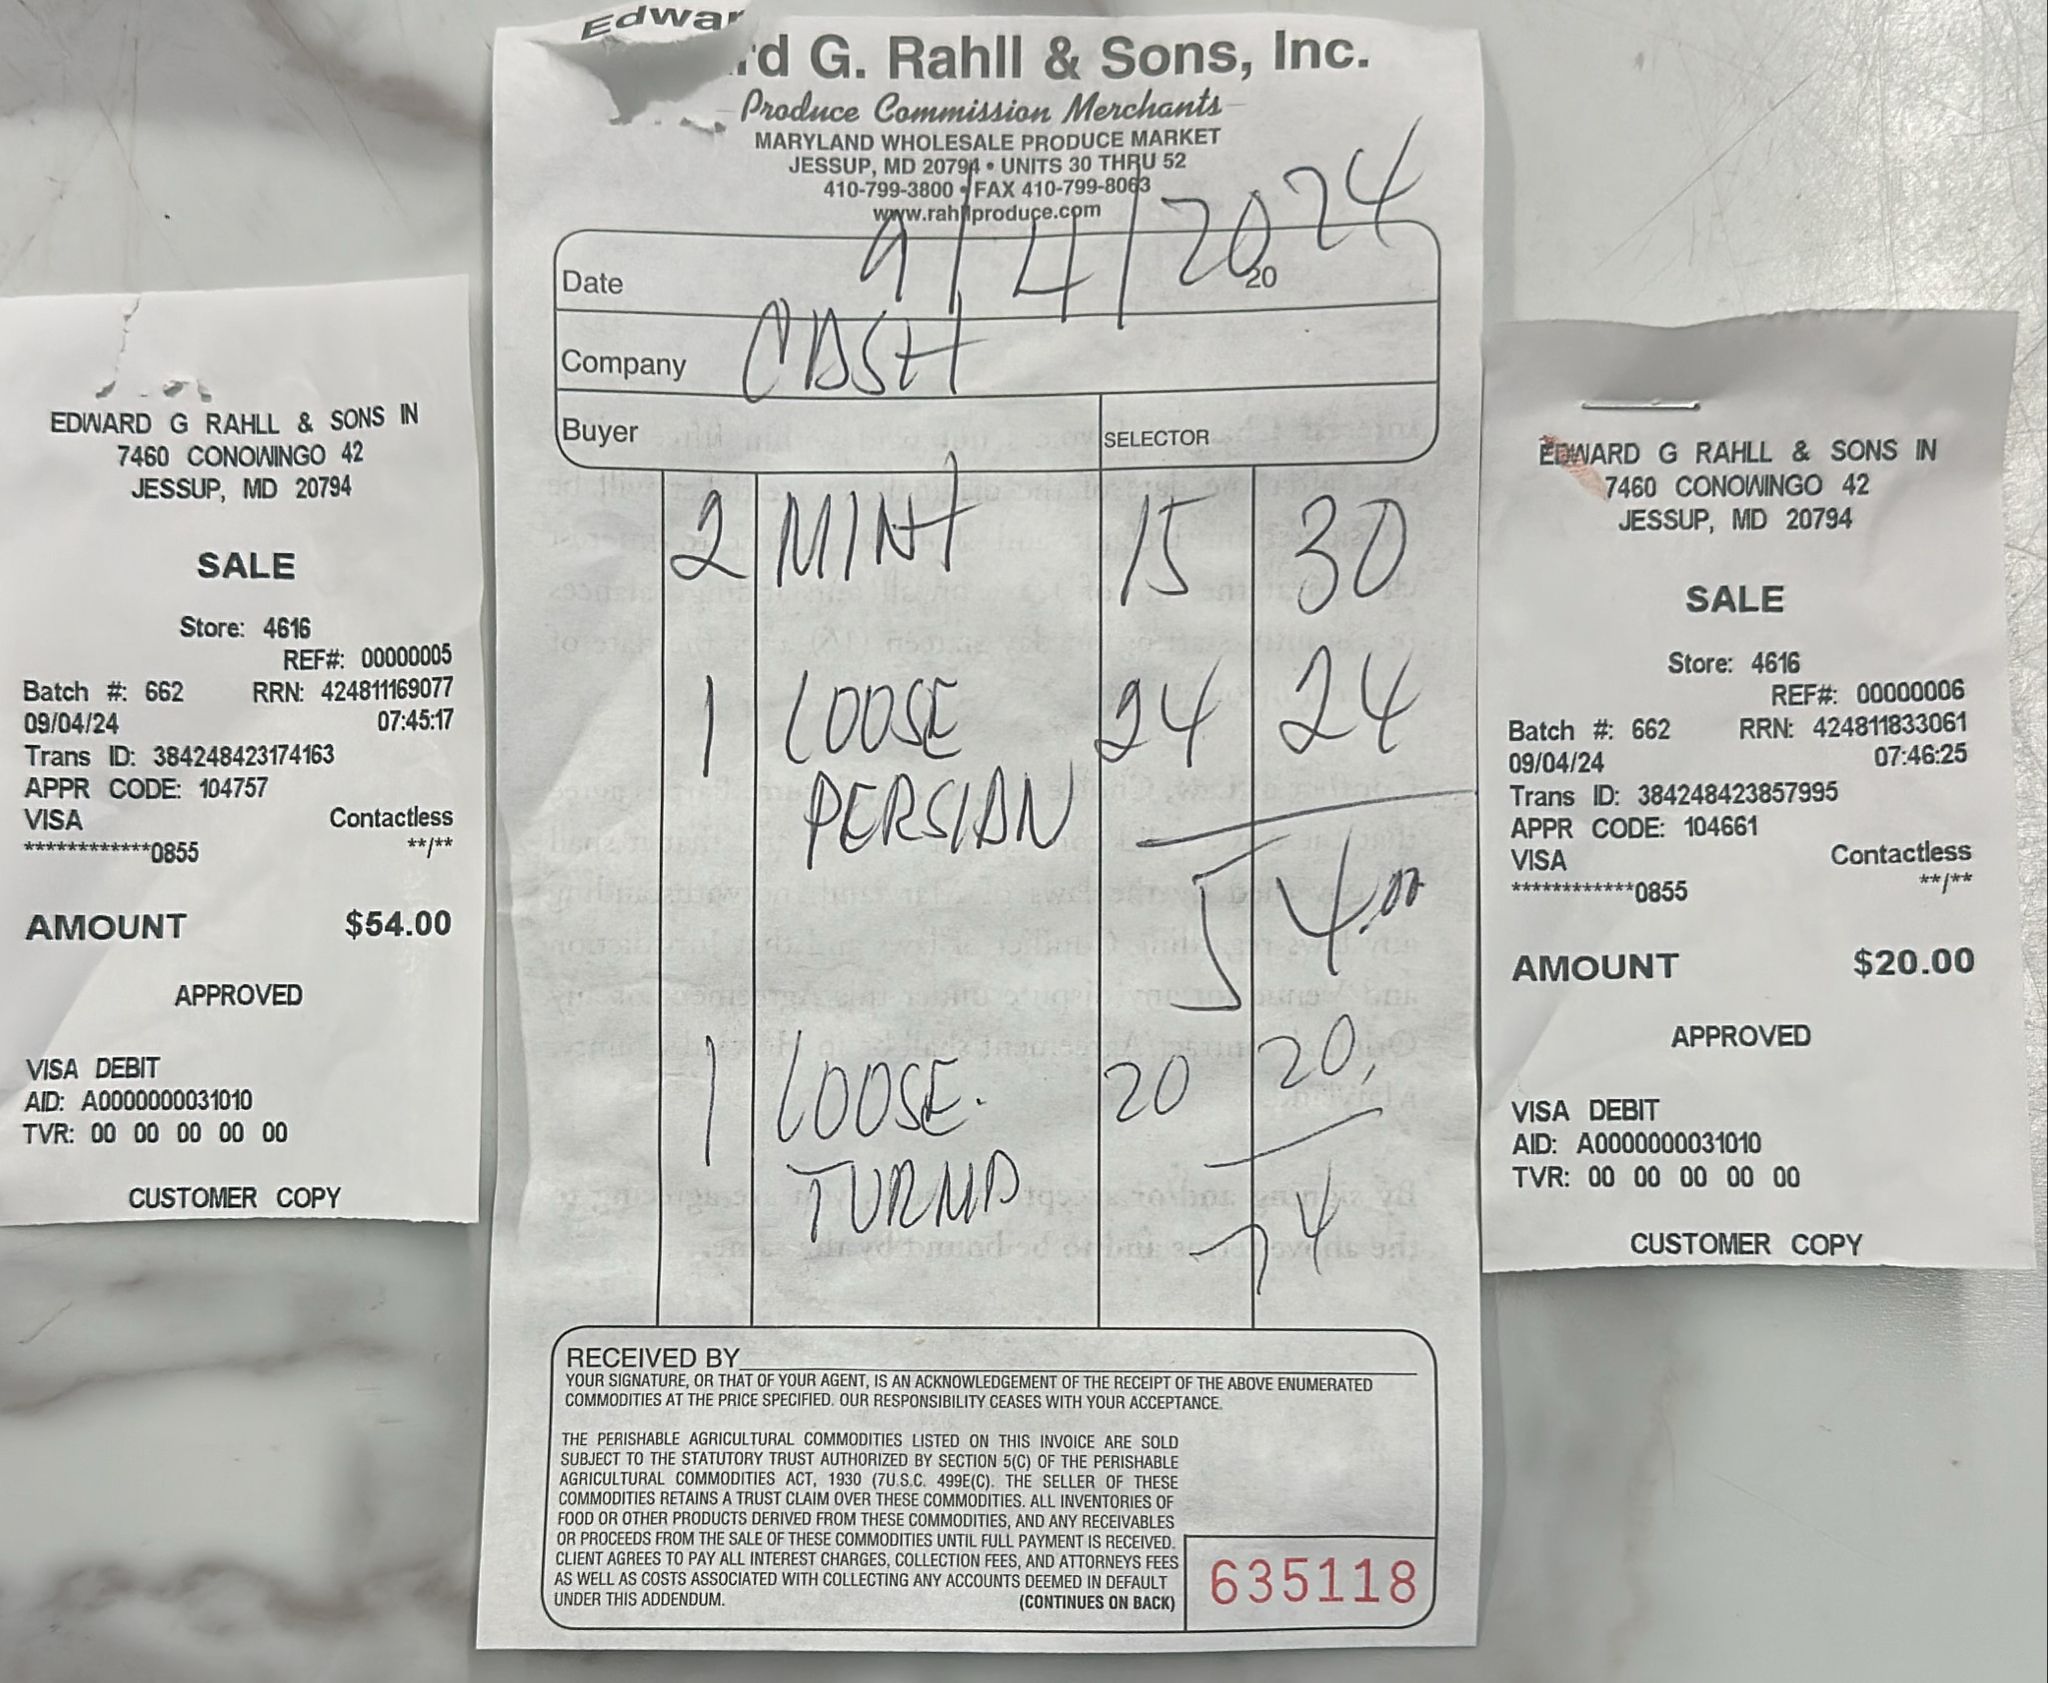 EDWARD G RAHLL & SONS IN
7460 CONOWINGO 42
JESSUP, MD 20794
SALE
Store: 4616
REF#: 00000005
Batch #: 662 RRN: 424811169077
09/04/24 07:45:17
Trans ID: 384248423174163
APPR CODE: 104757
VISA Contactless
************0855 **/**
AMOUNT $54.00
APPROVED
VISA DEBIT
AID: A0000000031010
TVR: 00 00 00 00 00
CUSTOMER COPY
Edwar
rd G. Rahll & Sons, Inc.
Produce Commission Merchants
MARYLAND WHOLESALE PRODUCE MARKET
JESSUP, MD 20794 • UNITS 30 THRU 52
410-799-3800 • FAX 410-799-8063
www.rahllproduce.com
Date 9/4/2024 20
Company CASH
Buyer SELECTOR
2 MINT 15 30
1 LOOSE 24 24
PERSIAN
54.00
1 LOOSE. 20 20,
TURNIP
74
RECEIVED BY
YOUR SIGNATURE, OR THAT OF YOUR AGENT, IS AN ACKNOWLEDGEMENT OF THE RECEIPT OF THE ABOVE ENUMERATED
COMMODITIES AT THE PRICE SPECIFIED. OUR RESPONSIBILITY CEASES WITH YOUR ACCEPTANCE.
THE PERISHABLE AGRICULTURAL COMMODITIES LISTED ON THIS INVOICE ARE SOLD
SUBJECT TO THE STATUTORY TRUST AUTHORIZED BY SECTION 5(C) OF THE PERISHABLE
AGRICULTURAL COMMODITIES ACT, 1930 (7U.S.C. 499E(C). THE SELLER OF THESE
COMMODITIES RETAINS A TRUST CLAIM OVER THESE COMMODITIES. ALL INVENTORIES OF
FOOD OR OTHER PRODUCTS DERIVED FROM THESE COMMODITIES, AND ANY RECEIVABLES
OR PROCEEDS FROM THE SALE OF THESE COMMODITIES UNTIL FULL PAYMENT IS RECEIVED.
CLIENT AGREES TO PAY ALL INTEREST CHARGES, COLLECTION FEES, AND ATTORNEYS FEES
AS WELL AS COSTS ASSOCIATED WITH COLLECTING ANY ACCOUNTS DEEMED IN DEFAULT
UNDER THIS ADDENDUM. (CONTINUES ON BACK)
635118
EDWARD G RAHLL & SONS IN
7460 CONOWINGO 42
JESSUP, MD 20794
SALE
Store: 4616
REF#: 00000006
Batch #: 662 RRN: 424811833061
09/04/24 07:46:25
Trans ID: 384248423857995
APPR CODE: 104661
VISA Contactless
************0855 **/**
AMOUNT $20.00
APPROVED
VISA DEBIT
AID: A0000000031010
TVR: 00 00 00 00 00
CUSTOMER COPY